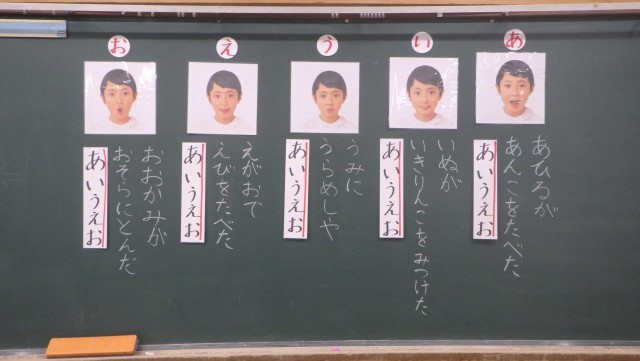 あ
あひるが
あんこをたべた
あいうえお
い
いぬが
いきりんこをみつけた
あいうえお
う
うみに
うらめしや
あいうえお
え
えがおで
えびをたべた
あいうえお
お
おおかみが
おそらにとんだ
あいうえお